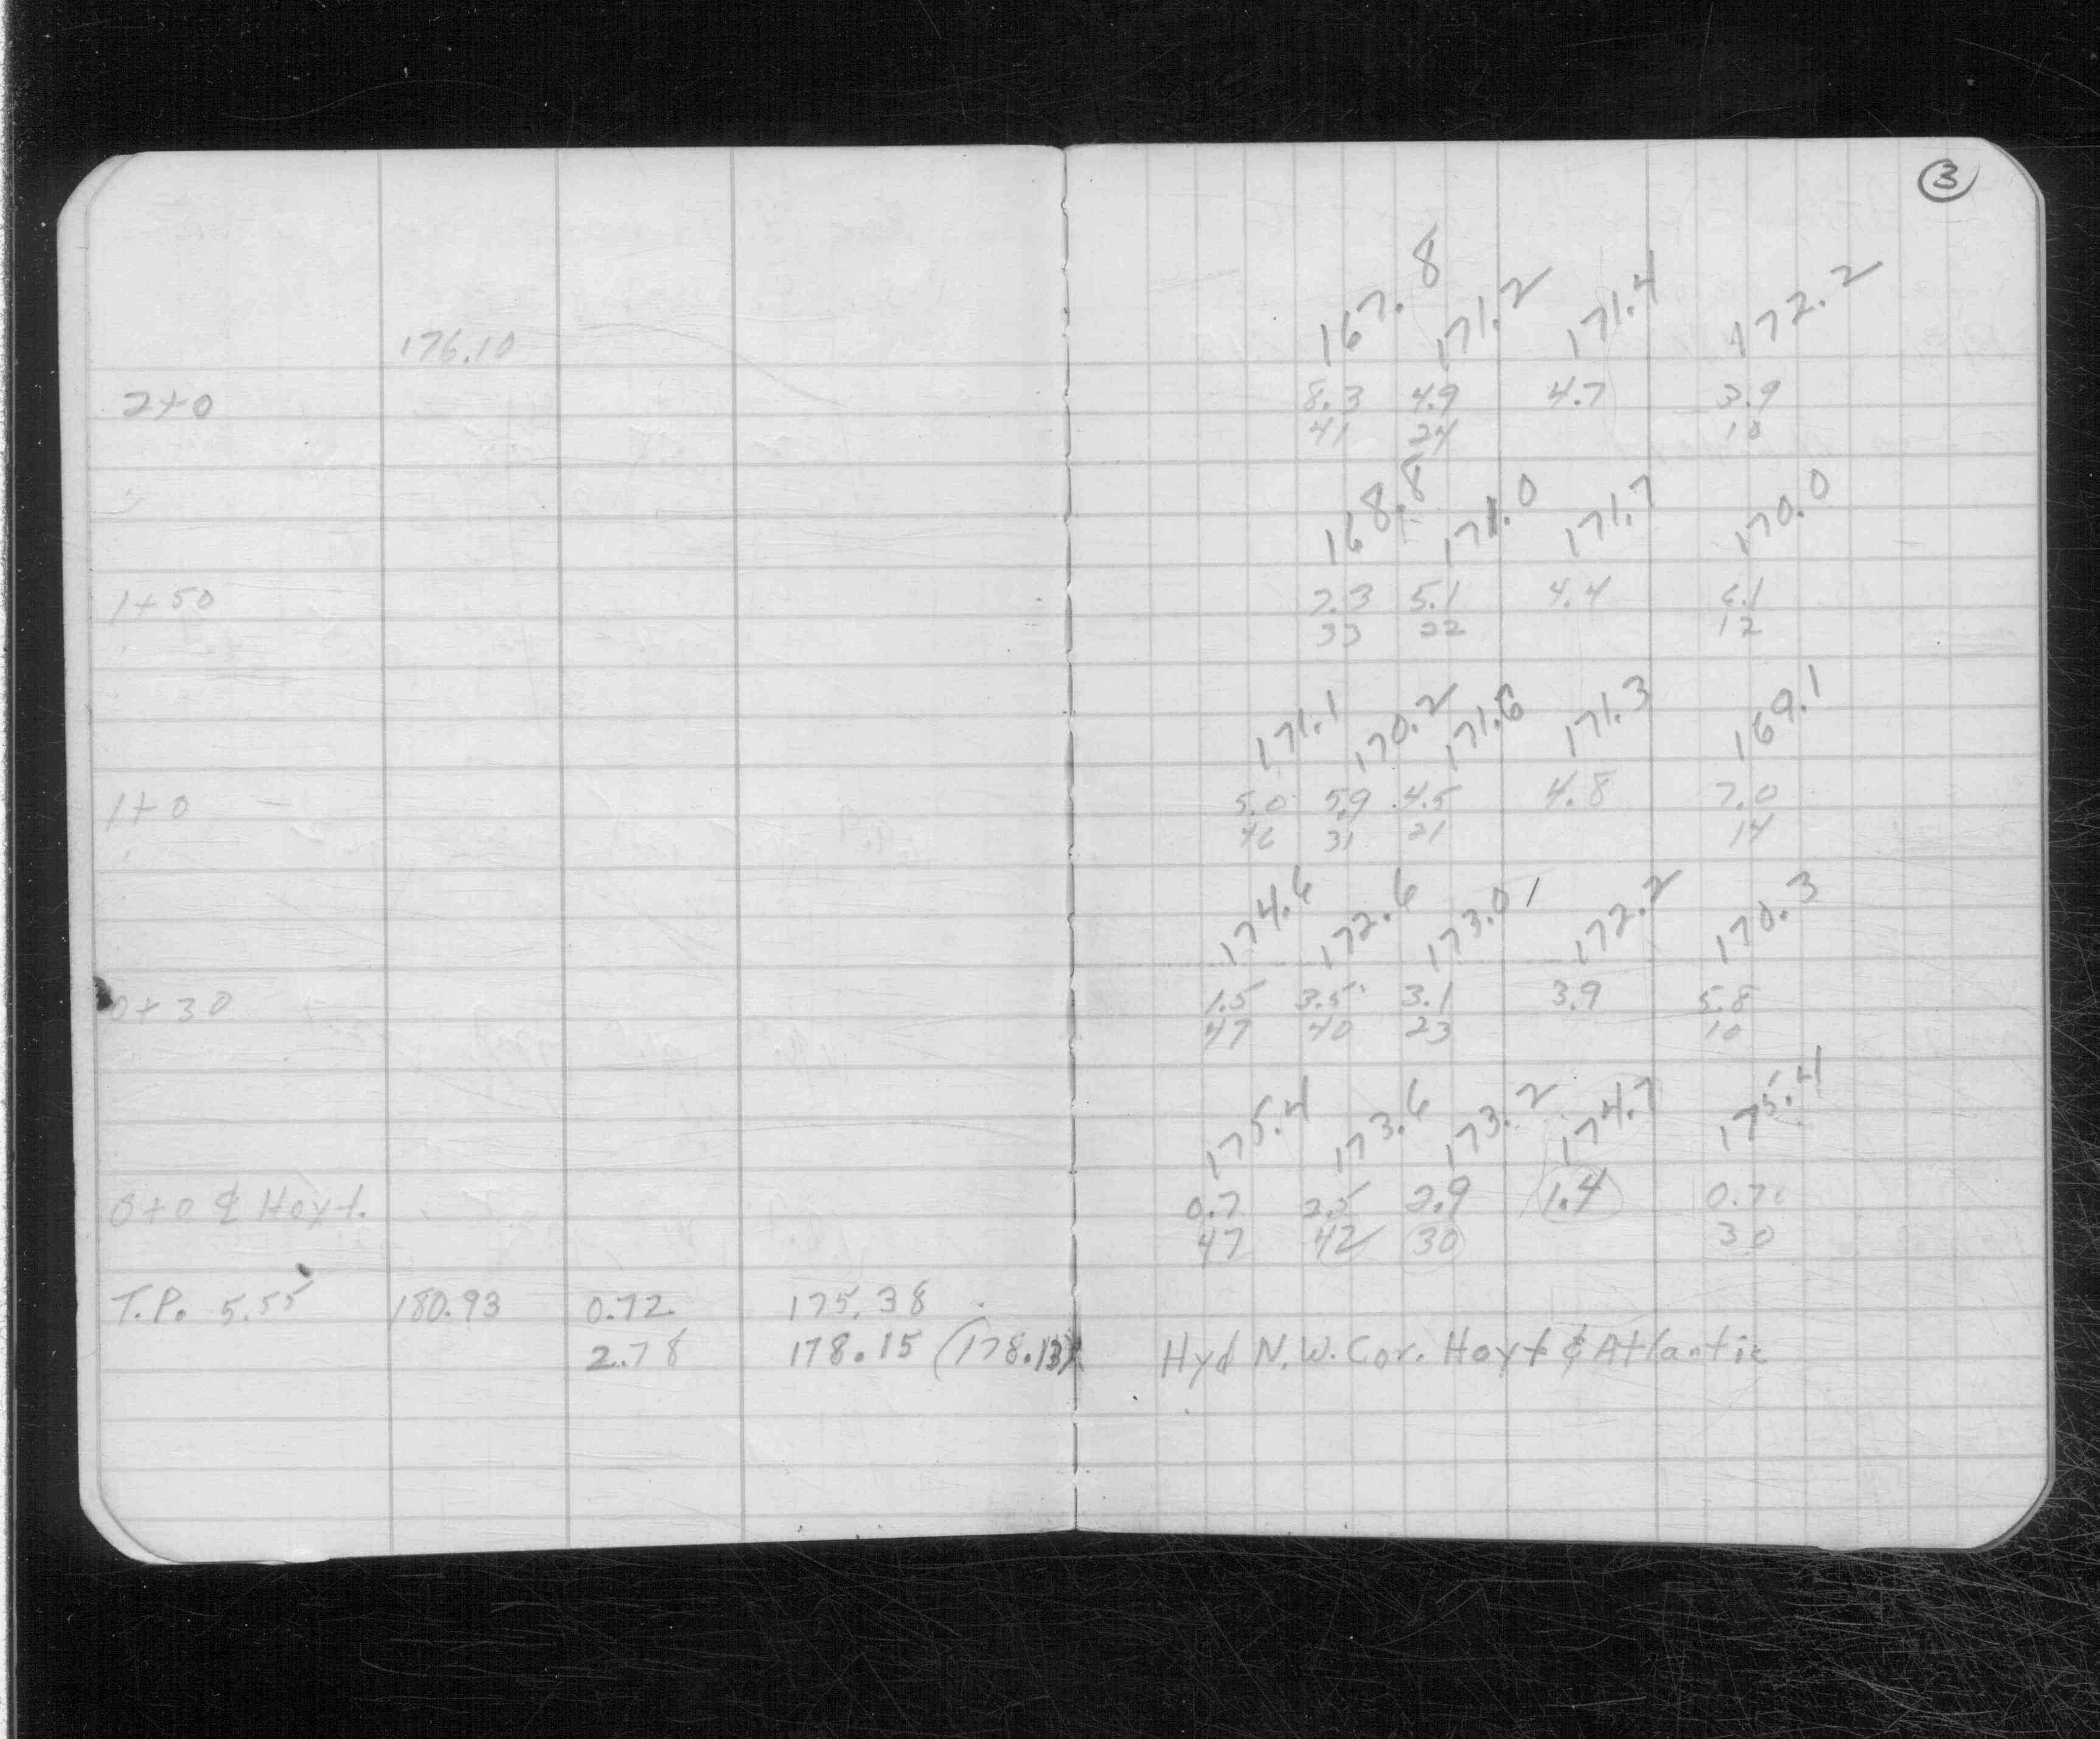 3
167.8 171.2 171.4 172.2
176.10
2+0 8.3 4.9 4.7 3.9
41 24 10
168.8 171.0 171.7 170.0
1+50 7.3 5.1 4.4 6.1
33 22 12
171.1 170.2 171.6 171.3 169.1
1+0 5.0 5.9 4.5 4.8 7.0
46 31 21 14
174.6 172.6 173.01 172.2 170.3
0+30 1.5 3.5 3.1 3.9 5.8
47 40 23 10
175.4 173.6 173.2 174.7 175.4
0+0 ℄ Hoyt. 0.7 2.5 2.9 1.4 0.7
47 42 30 30
T.P. 5.55 180.93 0.72 175.38
2.78 178.15 (178.13) Hyd N.W. Cor. Hoyt & Atlantic